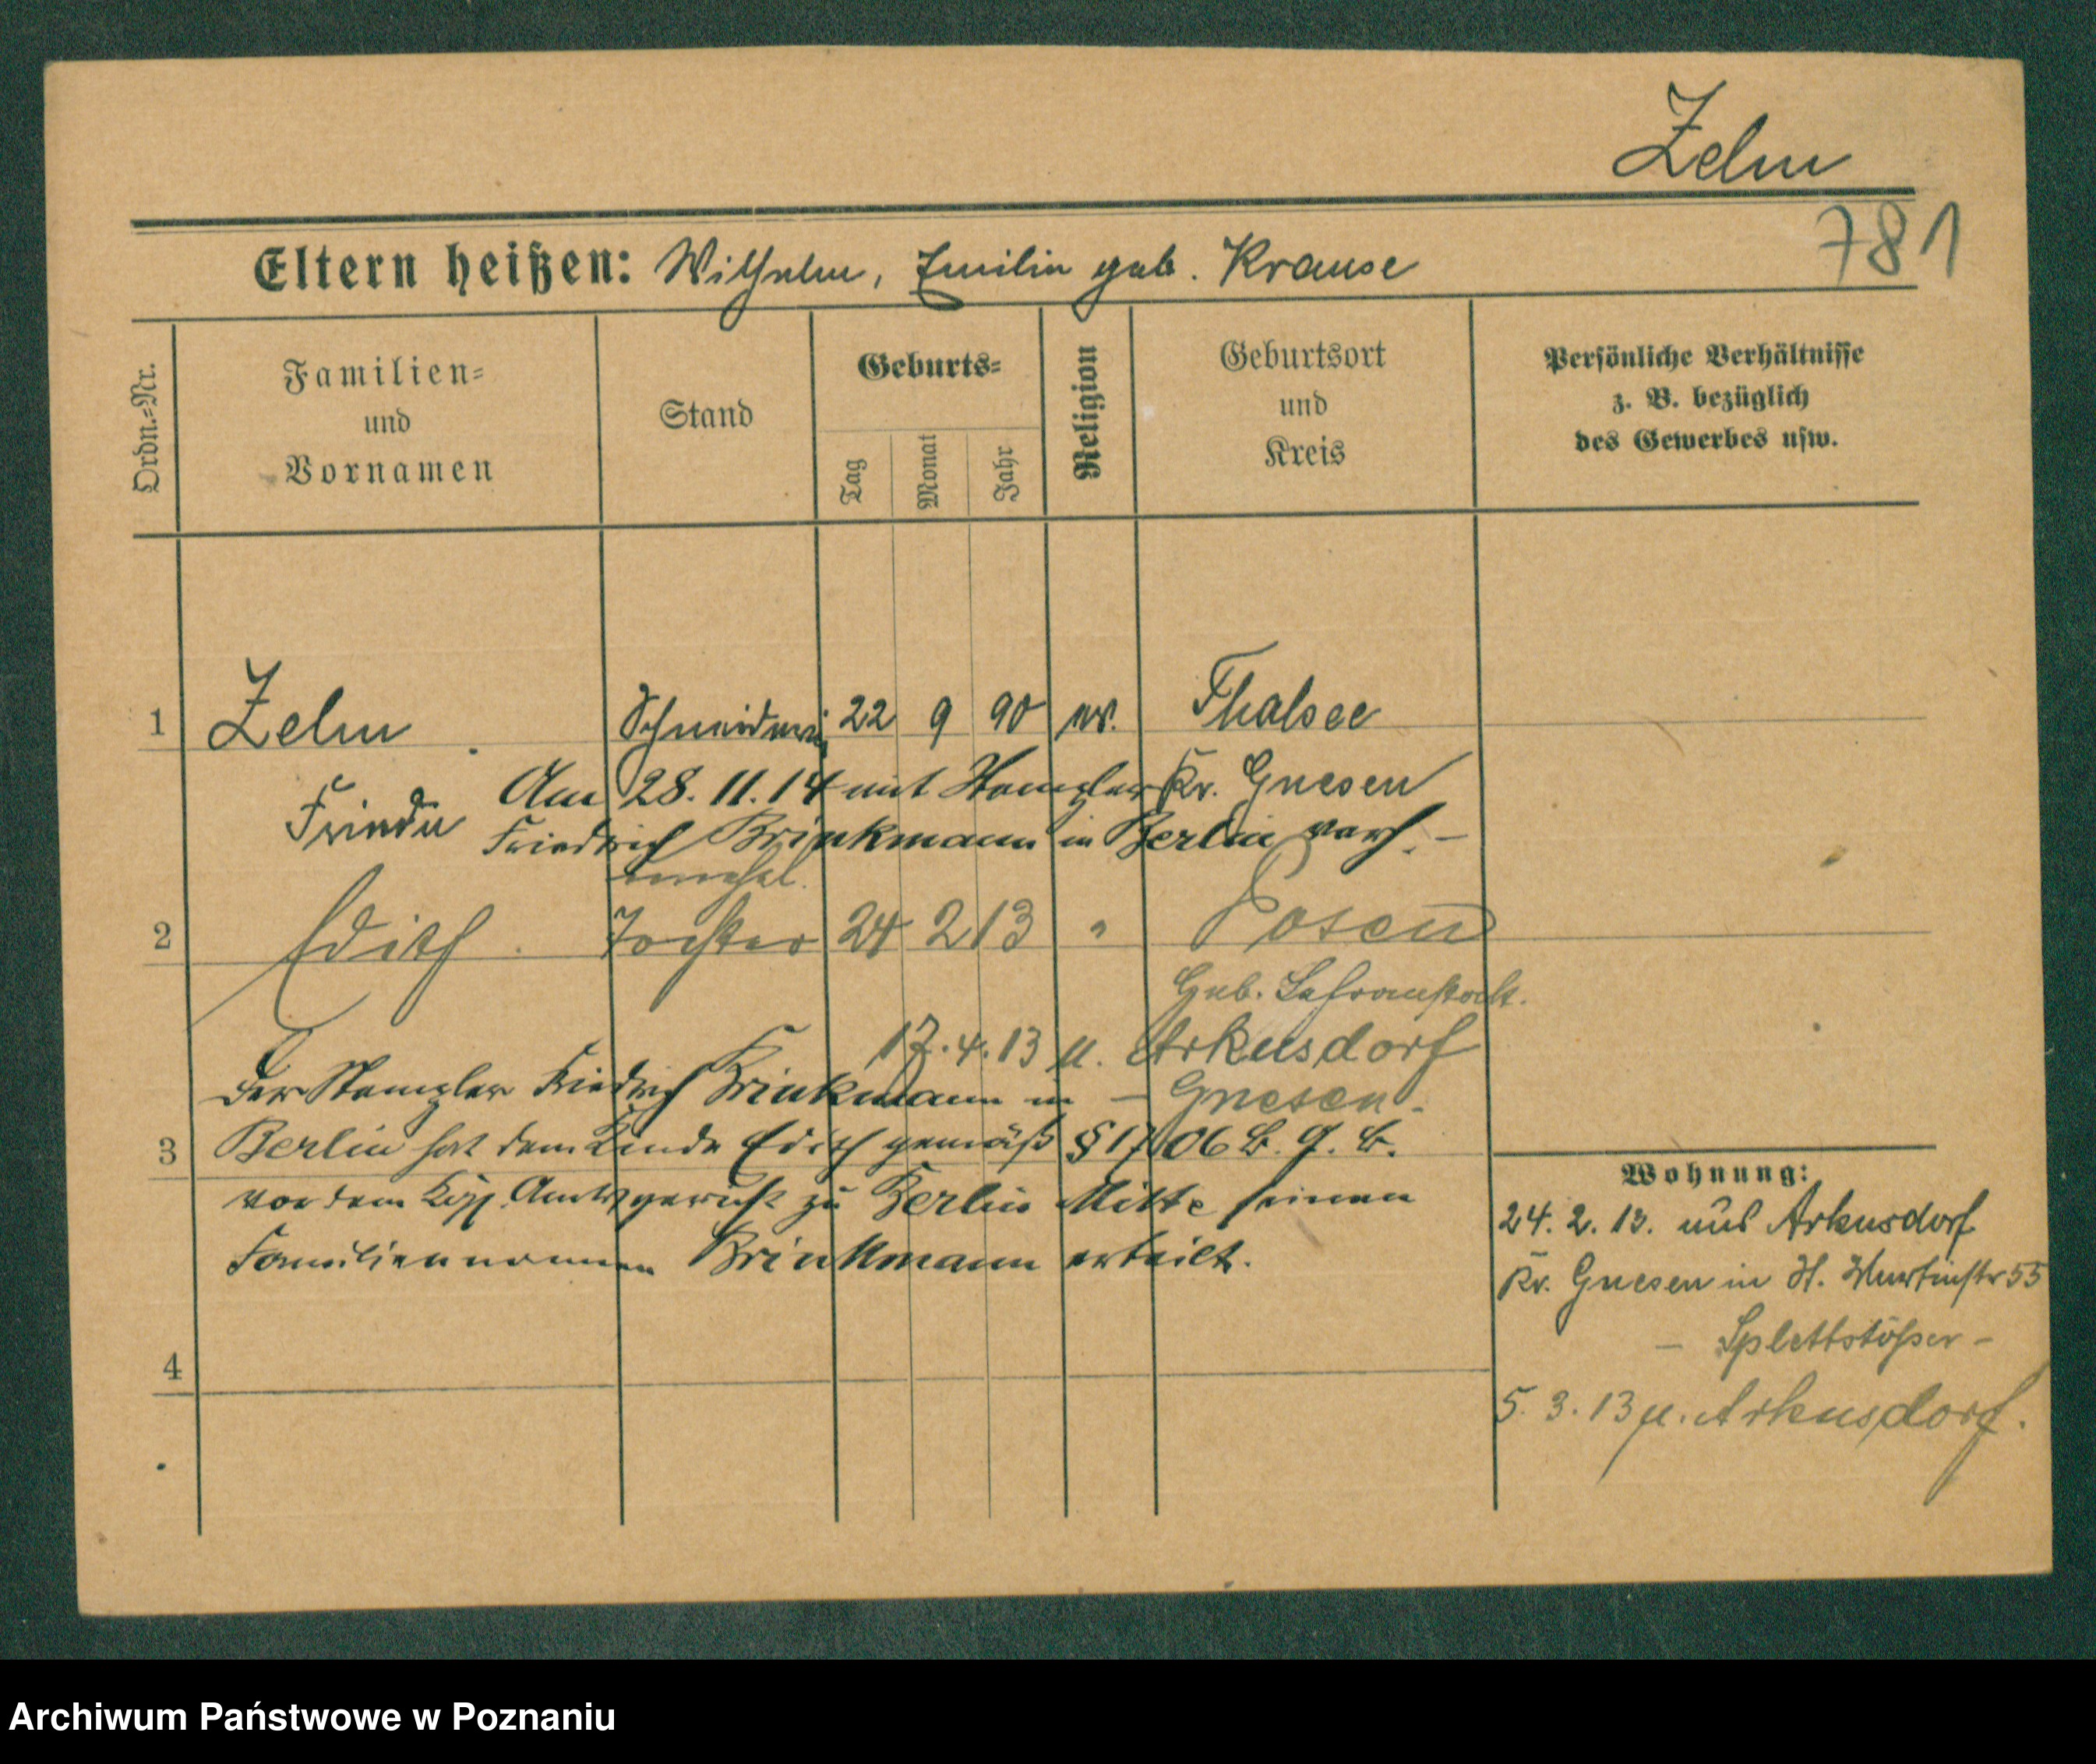 Zelm
781
Eltern heißen: Wilhelm, Emilie geb. Krause
Ordn.-Nr.
Familien- und Vornamen
Stand
Geburts-
Tag
Monat
Jahr
Religion
Geburtsort und Kreis
Persönliche Verhältnisse
z. B. bezüglich
des Gewerbes usw.
1 Zelm Schneiderin 22 9 90 ev. Thalsee
Frieda
Kr. Gnesen
Am 28. 11. 14 mit Stempler
Friedrich Brinkmann in Berlin verh. –
unehel.
2 Edith Tochter 24 2 13 " Posen
Geb.
17. 4. 13 u. Arkusdorf
– Gnesen.
Der Stempler Friedrich Brinkmann in
3 Berlin hat dem Kinde Edith gemäß § 1706 B. G. B.
vor dem Kgl. Amtsgericht zu Berlin Mitte seinen
Familiennamen Brinkmann erteilt.
4
Wohnung:
24. 2. 13. aus Arkusdorf
Kr. Gnesen in St. Martinstr 55
– Splettstößer –
5. 3. 13 u. Arkusdorf.
Archiwum Państwowe w Poznaniu